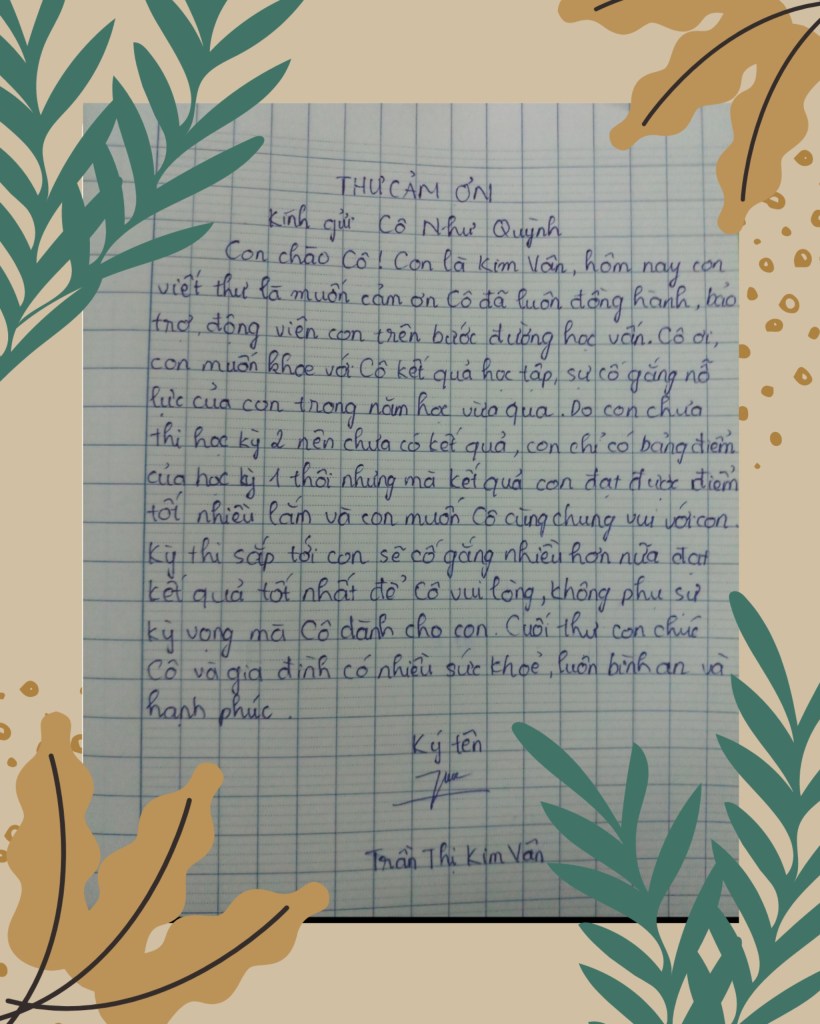 THƯ CẢM ƠN
Kính gửi Cô Như Quỳnh
Con chào Cô! Con là Kim Vân, hôm nay con
viết thư là muốn cảm ơn Cô đã luôn đồng hành, bảo
trợ, động viên con trên bước đường học vấn. Cô ơi,
con muốn khoe với Cô kết quả học tập, sự cố gắng nỗ
lực của con trong năm học vừa qua. Do con chưa
thi học kỳ 2 nên chưa có kết quả, con chỉ có bảng điểm
của học kỳ 1 thôi nhưng mà kết quả con đạt được điểm
tốt nhiều lắm và con muốn Cô cùng chung vui với con.
Kỳ thi sắp tới con sẽ cố gắng nhiều hơn nữa đạt
kết quả tốt nhất để Cô vui lòng, không phụ sự
kỳ vọng mà Cô dành cho con. Cuối thư con chúc
Cô và gia đình có nhiều sức khoẻ, luôn bình an và
hạnh phúc.
Ký tên
Trần Thị Kim Vân